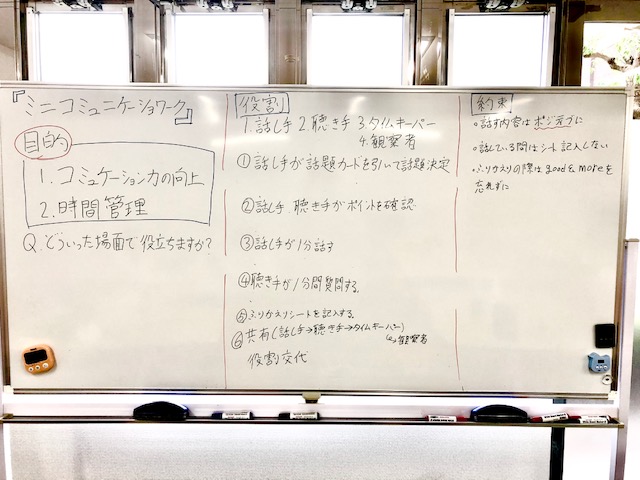 『ミニコミュニケーショワーク』
目的
1. コミュケーション力の向上
2. 時間管理
Q. どういった場面で役立ちますか?
役割
1. 話し手 2. 聴き手 3. タイムキーパー
4. 観察者
①話し手が話題カードを引いて話題決定
②話し手、聴き手がポイントを確認
③話し手が1分話す
④聴き手が1分間質問する。
⑤ふりかえりシートを記入する。
⑥共有(話し手→聴き手→タイムキーパー)
→観察者
役割交代
約束
○話す内容はポジティブに
○話している間はシート記入しない
○ふりかえりの際はgood & moreを
忘れずに